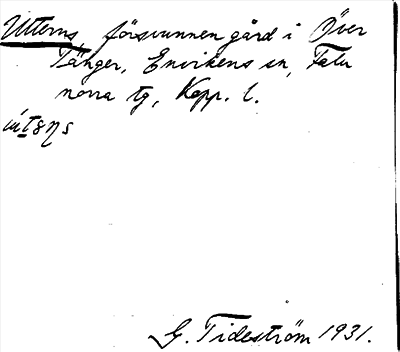 Utterns, försvunnen gård i Över
Tänger, Envikens sn, Falu
norra tg, Kopp. l.
G. Tideström 1931.